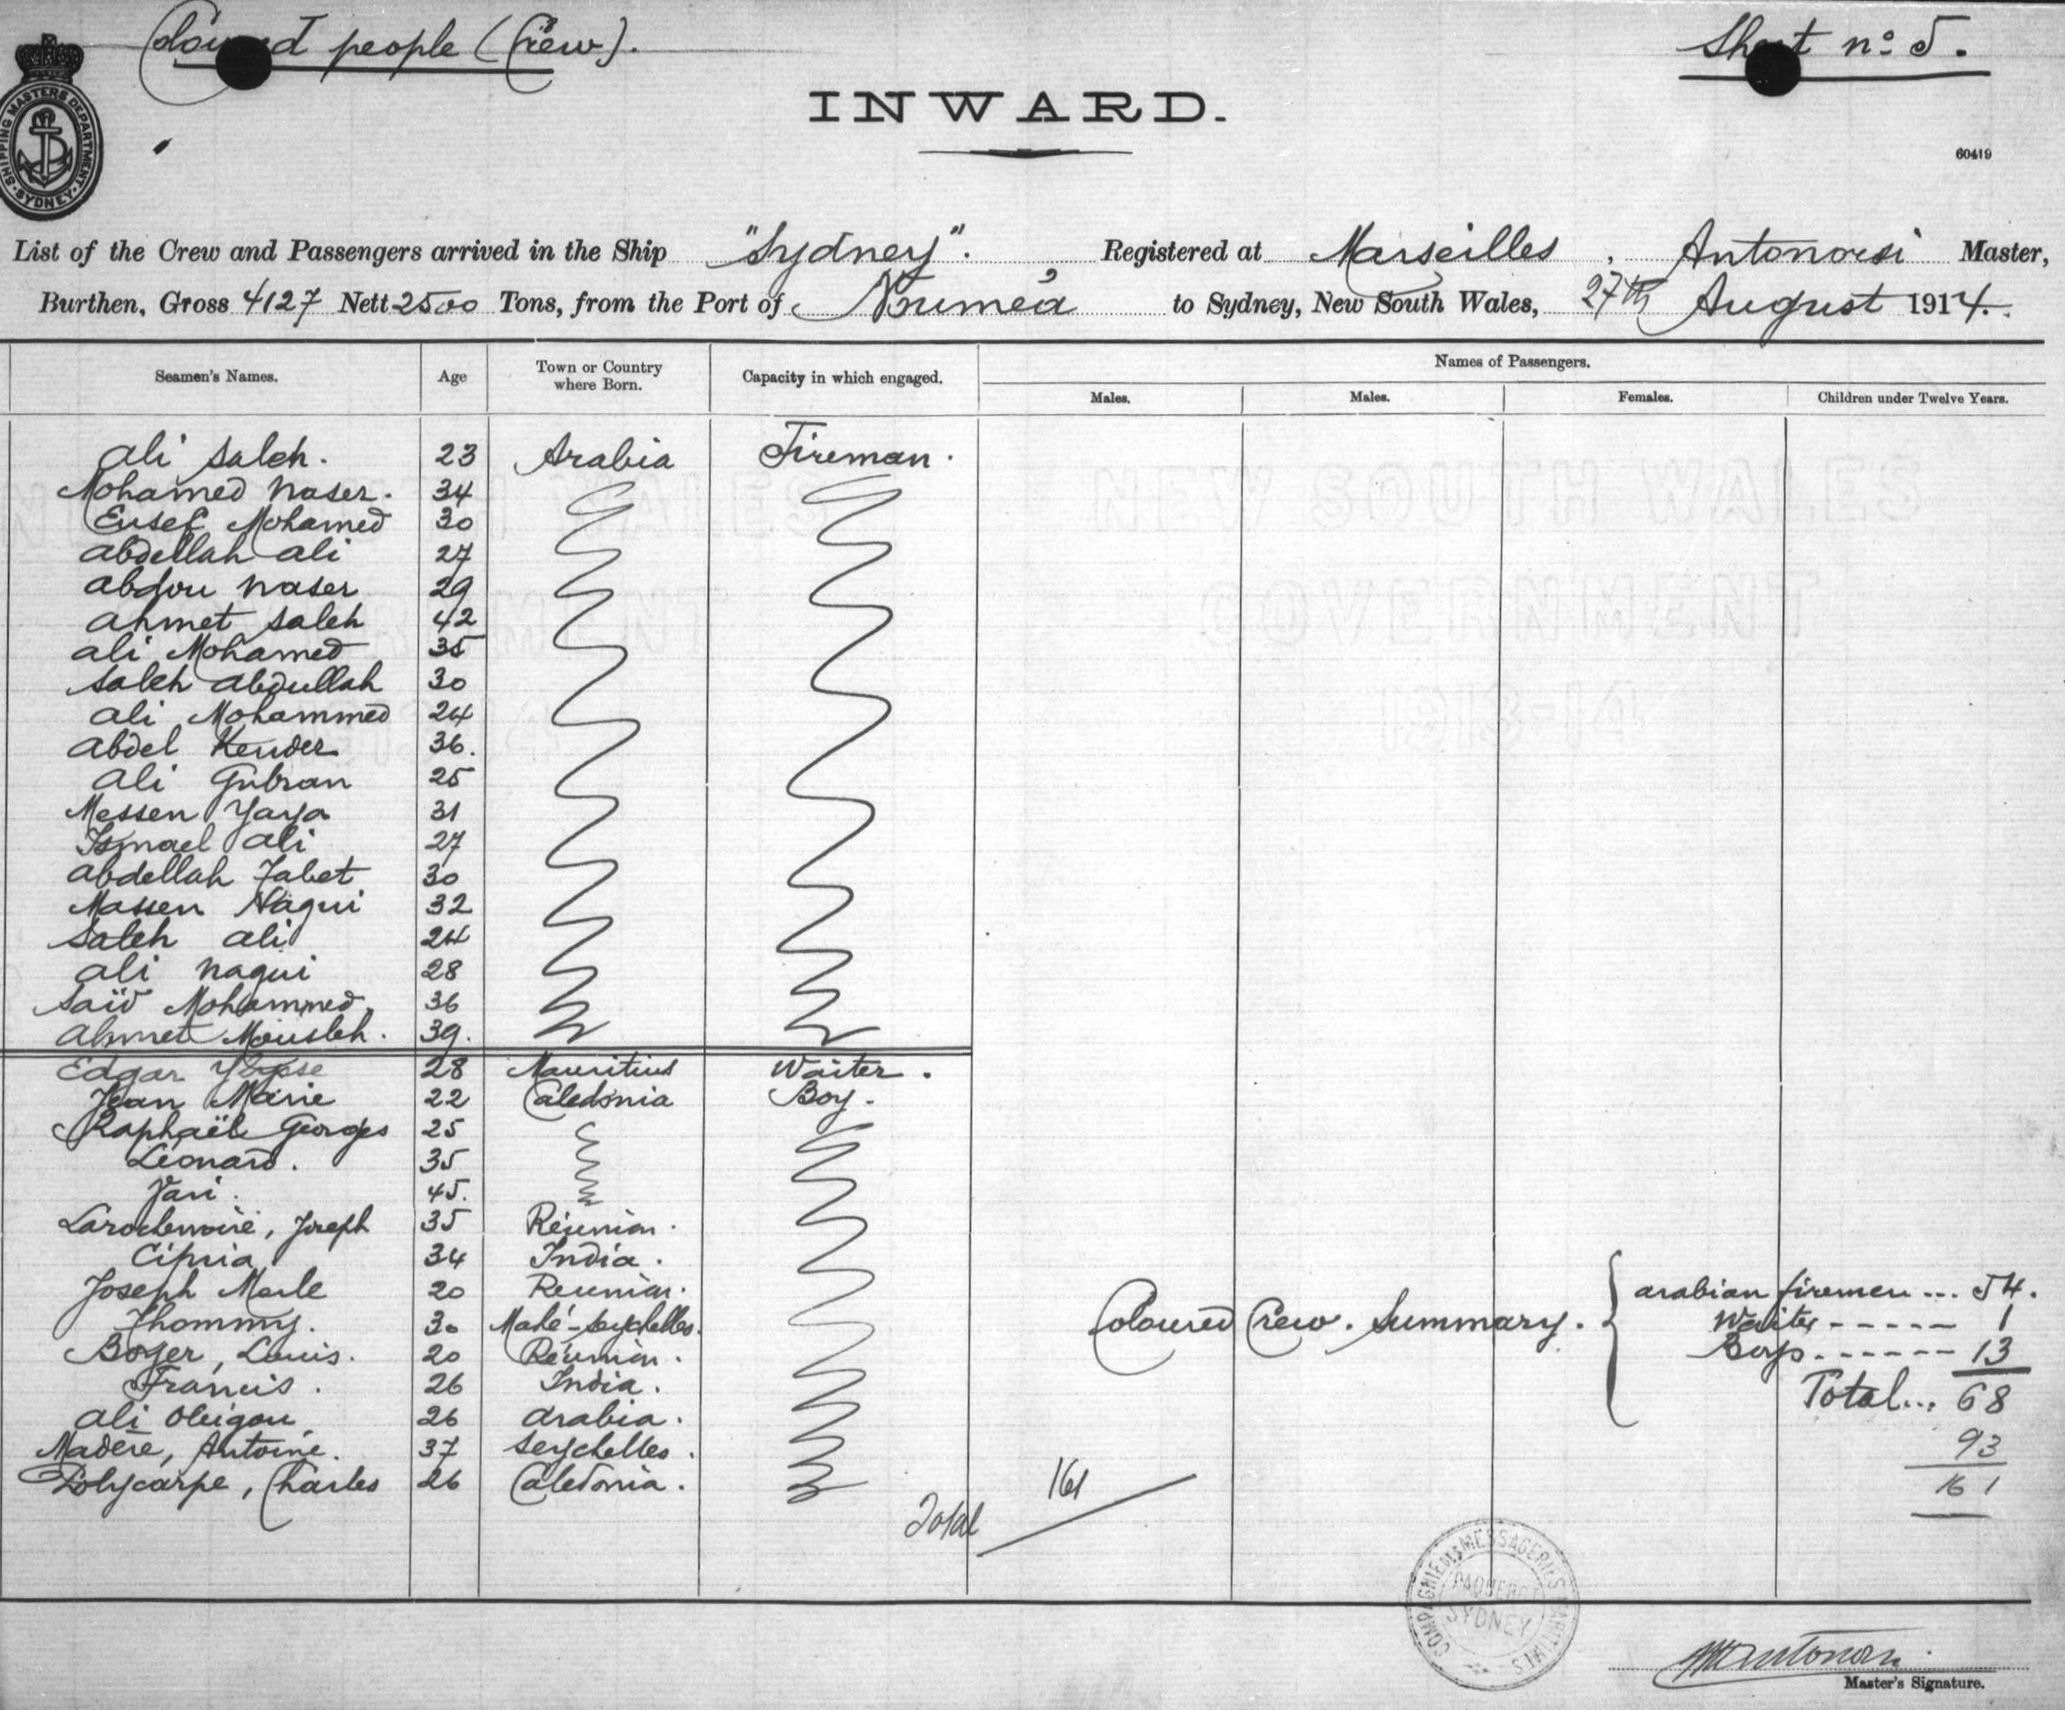 Coloured people (Crew).
Sheet no 5.
SHIPPING MASTERS DEPARTMENT
SYDNEY
INWARD.
60419
List of the Crew and Passengers arrived in the Ship "Sydney". Registered at Marseilles, Antonorsi Master,
Burthen, Gross 4127 Nett 2500 Tons, from the Port of Nouméa to Sydney, New South Wales, 27th August 1914.
Seamen's Names. Age Town or Country where Born. Capacity in which engaged. Names of Passengers.
Males. Males. Females. Children under Twelve Years.
NEW SOUTH WALES
GOVERNMENT
Ali Saleh. 23 Arabia Fireman.
Mohamed Naser. 34
Eusef Mohamed 30
Abdellah Ali 27
Abdou Naser 29
Ahmet Saleh 42
Ali Mohamed 35
Saleh Abdullah 30
Ali Mohammed 24
Abdel Kender 36.
Ali Gubran 25
Messen Yaya 31
Ismael Ali 27
Abdellah Tabet 30
Massen Nagui 32
Saleh Ali 24
Ali Nagui 28
Saïd Mohammed. 36
Ahmet Mousleh. 39.
Edgar 28 Mauritius Waiter.
Jean Marie 22 Caledonia Boy.
Raphaël Georges 25
Léonard. 35
Yari. 45.
Joseph 35 Réunion.
Cipria 34 India.
Joseph Merle 20 Reunion.
Thommy. 30 Mahé-Seychelles.
Boyer, Louis. 20 Réunion.
Francis. 26 India.
Ali 26 Arabia.
Madère, Antoine. 37 Seychelles.
Polycarpe, Charles 26 Caledonia.
Coloured Crew. Summary.
Arabian firemen ... 54.
Waiter ----- 1
Boys ------ 13
Total... 68
93
161
Total 161
COMPAGNIE DES MESSAGERIES MARITIMES
PAQUEBOT
SYDNEY
Antonorsi
Master's Signature.